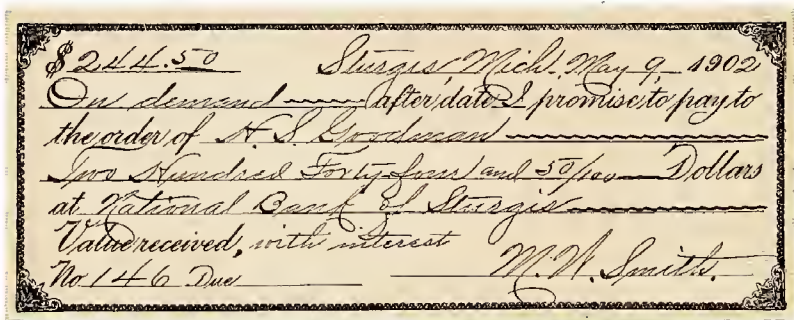 $244.50 Sturgis, Mich. May 9, 1902
On demand after date I promise to pay to
the order of H. S. Goodman
Two Hundred Forty-four and 50/100 Dollars
at National Bank of Sturgis
Value received, with interest
No. 146 Due M. W. Smith.